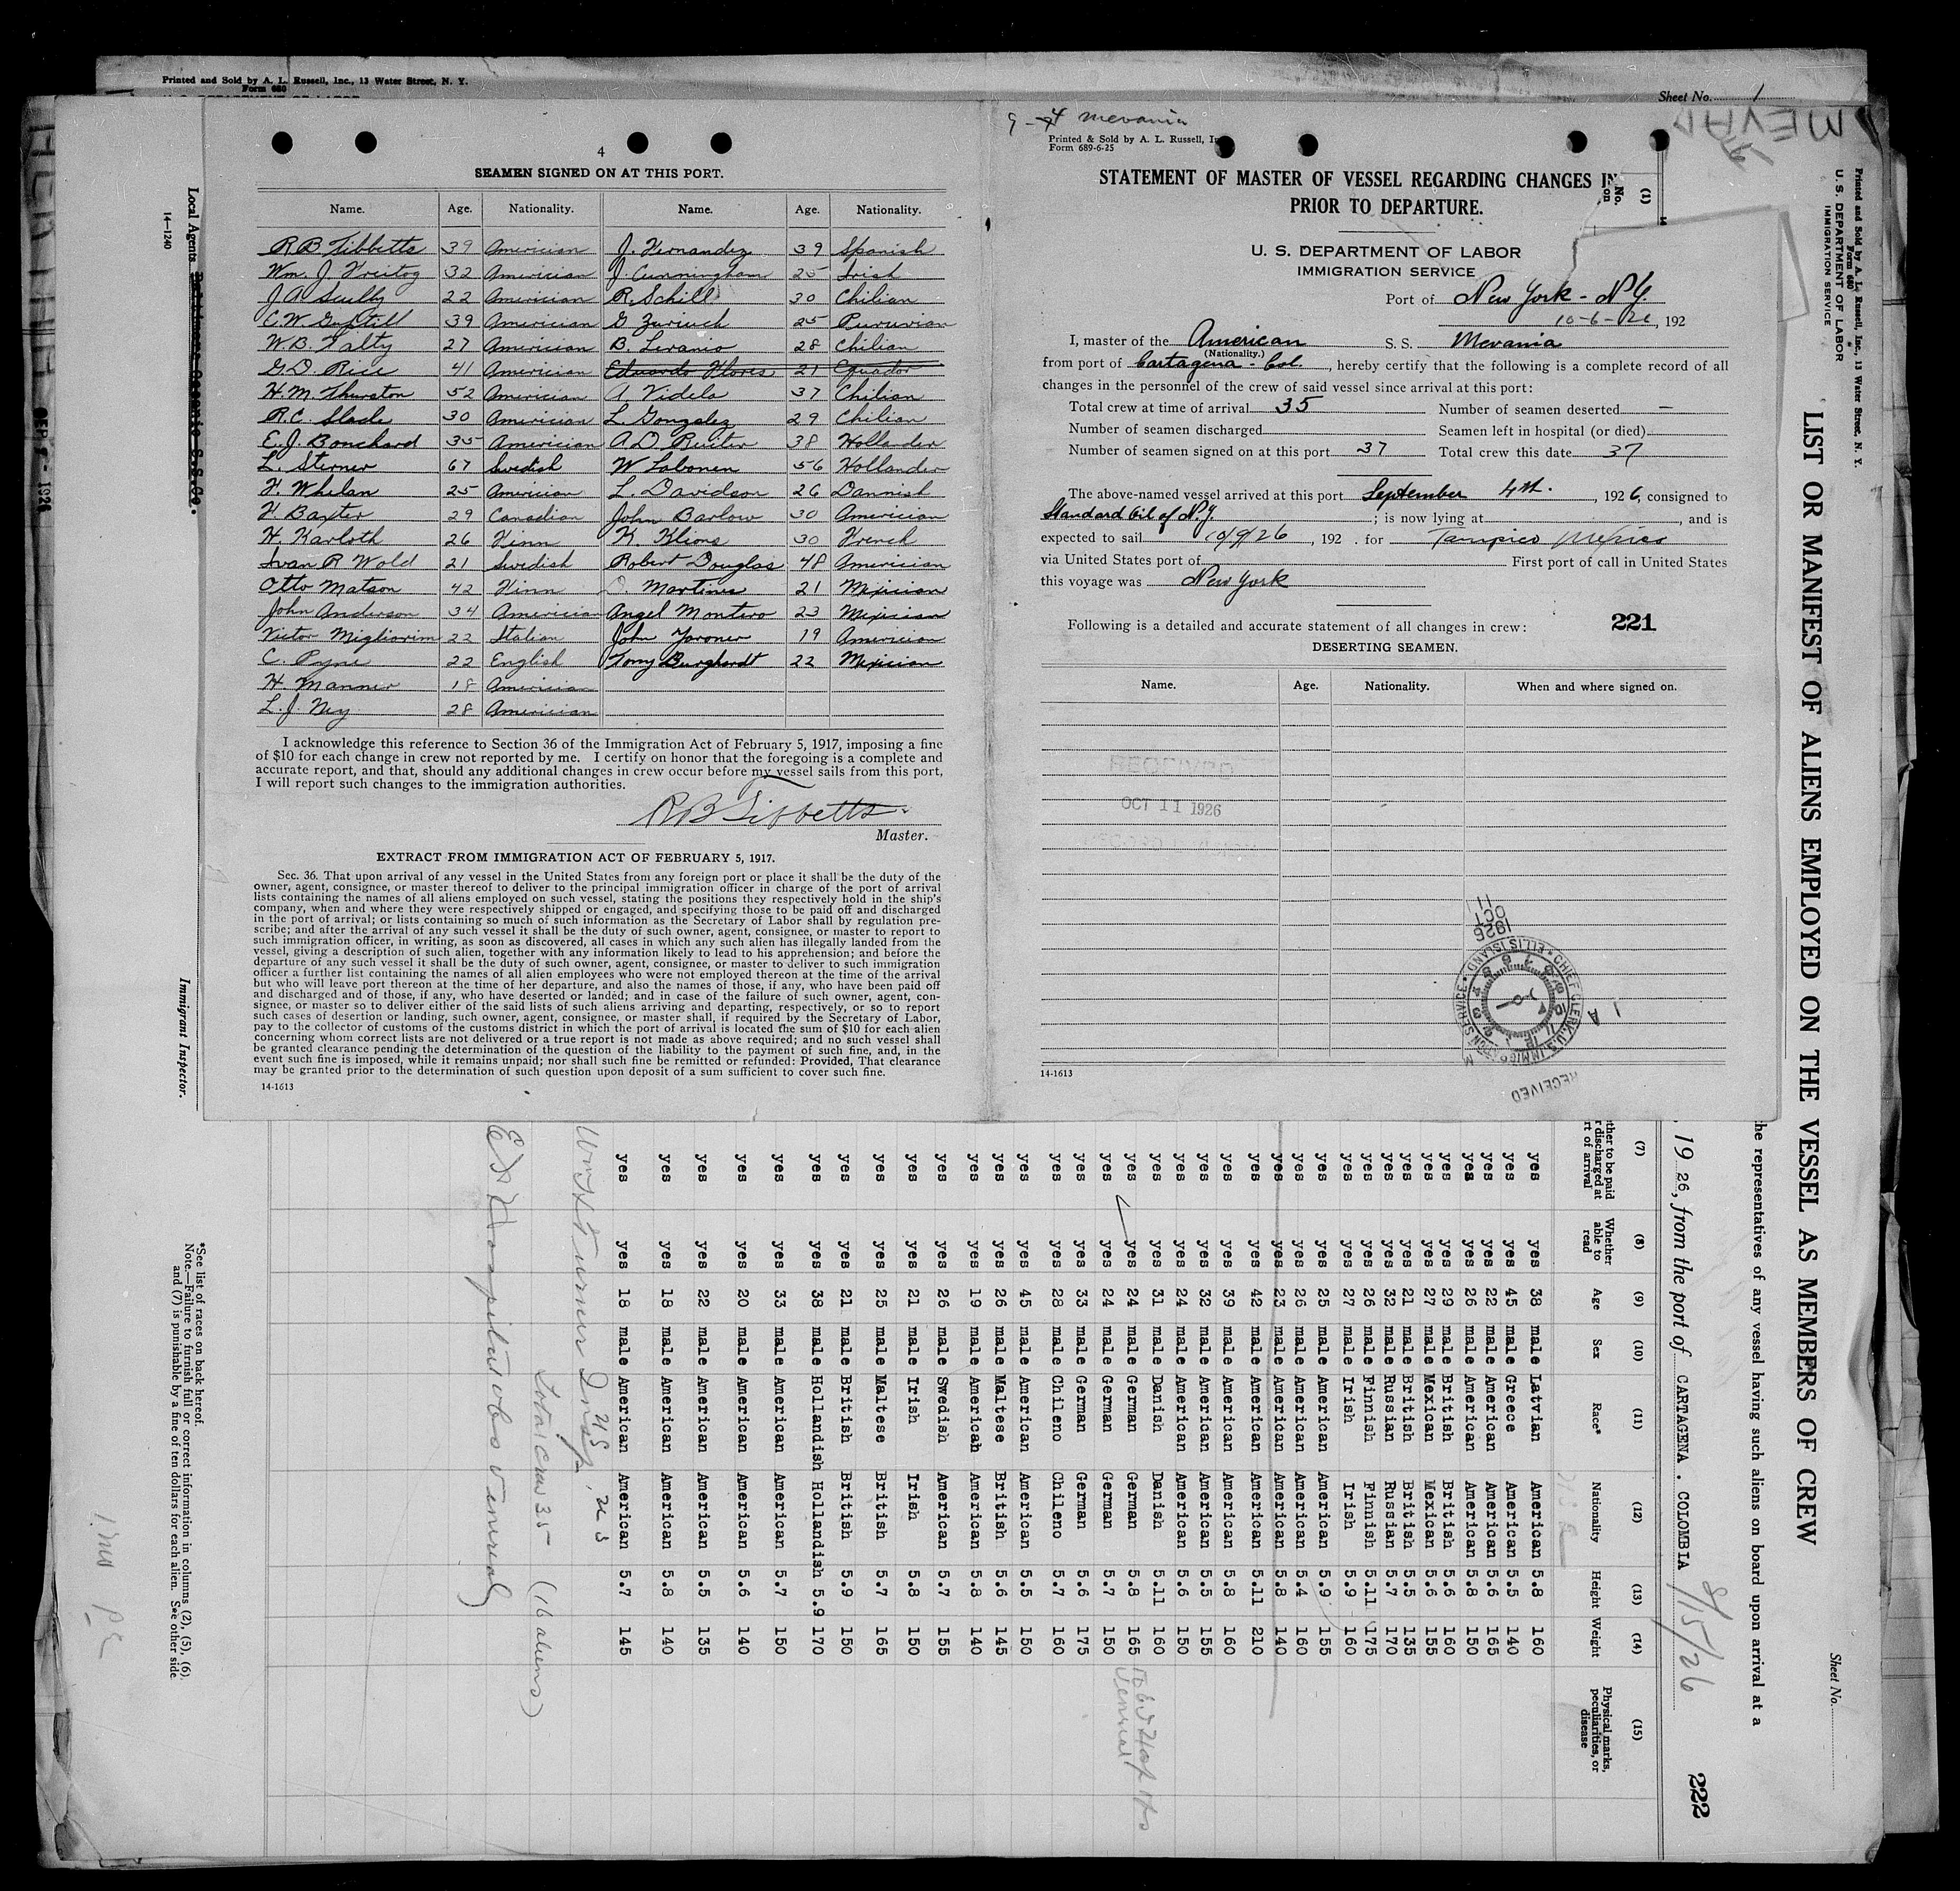 Printed and Sold by A. L. Russell, Inc., 13 Water Street, N. Y.
Form 680
Sheet No. 1
4
SEAMEN SIGNED ON AT THIS PORT.
Name. Age. Nationality. Name. Age. Nationality.
R B Tibbetts 39 Americian J. Hernandez 39 Spanish
Wm. J. Freitog 32 Americian J. Cunningham 25 Irish
J A Scully 22 Americian R. Schill 30 Chilian
C. W. Guptill 39 Americian G Zuriuch 25 Puruvian
W B. Falty 27 Americian B. Levanio 28 Chilian
G D. Rice 41 Americian Eduardo Flores 21 Equador
H. M. Thurston 52 Americian A. Videla 37 Chilian
R. C. Slade 30 Americian L. Gonzalez 29 Chilian
E. J. Bouchard 35 Americian A D. Ruiter 38 Hollander
L. Sterner 67 Swedish W Labonen 56 Hollander
F. Whelan 25 Americian L. Davidson 26 Dannish
F. Baxter 29 Canadian John Barlow 30 Americian
H. Karloth 26 Finn K. Klions 30 French
Ivan R Wold 21 Swedish Robert Douglas 48 Americian
Otto Matson 42 Finn Martines 21 Mexician
John Anderson 34 Americian Angel Montero 23 Mexician
Victor Migliarini 22 Italian John 19 Americian
C. Pyne 22 English Tony Burghardt 22 Mexician
H. Manner 18 Americian
L. J. Ney 28 Americian
I acknowledge this reference to Section 36 of the Immigration Act of February 5, 1917, imposing a fine
of $10 for each change in crew not reported by me. I certify on honor that the foregoing is a complete and
accurate report, and that, should any additional changes in crew occur before my vessel sails from this port,
I will report such changes to the immigration authorities.
R B Tibbetts
Master.
EXTRACT FROM IMMIGRATION ACT OF FEBRUARY 5, 1917.
Sec. 36. That upon arrival of any vessel in the United States from any foreign port or place it shall be the duty of the
owner, agent, consignee, or master thereof to deliver to the principal immigration officer in charge of the port of arrival
lists containing the names of all aliens employed on such vessel, stating the positions they respectively hold in the ship's
company, when and where they were respectively shipped or engaged, and specifying those to be paid off and discharged
in the port of arrival; or lists containing so much of such information as the Secretary of Labor shall by regulation pre-
scribe; and after the arrival of any such vessel it shall be the duty of such owner, agent, consignee, or master to report to
such immigration officer, in writing, as soon as discovered, all cases in which any such alien has illegally landed from the
vessel, giving a description of such alien, together with any information likely to lead to his apprehension; and before the
departure of any such vessel it shall be the duty of such owner, agent, consignee, or master to deliver to such immigration
officer a further list containing the names of all alien employees who were not employed thereon at the time of the arrival
but who will leave port thereon at the time of her departure, and also the names of those, if any, who have been paid off
and discharged and of those, if any, who have deserted or landed; and in case of the failure of such owner, agent, con-
signee, or master so to deliver either of the said lists of such aliens arriving and departing, respectively, or so to report
such cases of desertion or landing, such owner, agent, consignee, or master shall, if required by the Secretary of Labor,
pay to the collector of customs of the customs district in which the port of arrival is located the sum of $10 for each alien
concerning whom correct lists are not delivered or a true report is not made as above required; and no such vessel shall
be granted clearance pending the determination of the question of the liability to the payment of such fine, and, in the
event such fine is imposed, while it remains unpaid; nor shall such fine be remitted or refunded: Provided, That clearance
may be granted prior to the determination of such question upon deposit of a sum sufficient to cover such fine.
14-1613
9-4 Mevania
Printed & Sold by A. L. Russell, In
Form 689-6-25
STATEMENT OF MASTER OF VESSEL REGARDING CHANGES IN
PRIOR TO DEPARTURE.
U. S. DEPARTMENT OF LABOR
IMMIGRATION SERVICE
Port of New York - N.Y.
10-6-26, 192
I, master of the American S. S. Mevania
(Nationality.)
from port of Cartagena - Col., hereby certify that the following is a complete record of all
changes in the personnel of the crew of said vessel since arrival at this port:
Total crew at time of arrival 35 Number of seamen deserted —
Number of seamen discharged Seamen left in hospital (or died)
Number of seamen signed on at this port 37 Total crew this date 37
The above-named vessel arrived at this port September 4th., 1926, consigned to
Standard Oil of N.J.; is now lying at , and is
expected to sail 10/9/26, 192 . for Tampico Mexico
via United States port of First port of call in United States
this voyage was New York
Following is a detailed and accurate statement of all changes in crew: 221
DESERTING SEAMEN.
Name. Age. Nationality. When and where signed on.
RECEIVED
OCT 11 1926
1926
OCT
11
CHIEF CLERK U.S. IMMIGRATION SERVICE ELLIS ISLAND
RECEIVED
14-1613
MEVAN
Printed and Sold by A. L. Russell, Inc., 13 Water Street, N. Y.
Form 680
U. S. DEPARTMENT OF LABOR
IMMIGRATION SERVICE
Sheet No.
LIST OR MANIFEST OF ALIENS EMPLOYED ON THE VESSEL AS MEMBERS OF CREW
he representatives of any vessel having such aliens on board upon arrival at a
, 1926, from the port of CARTAGENA . COLOMBIA 8/15/26
222
(1)
No. on
(7) (8) (9) (10) (11) (12) (13) (14) (15)
ther to be paid r discharged at rt of arrival
Whether able to read
Age Sex Race* Nationality Height Weight
Physical marks, peculiarities, or disease
yes yes 38 male Latvian American 5.8 160
yes yes 45 male Greece American 5.5 140
yes yes 22 male American American 5.6 165
yes yes 26 male American American 5.8 150
yes yes 29 male British British 5.6 160
yes yes 27 male Mexican Mexican 5.6 155
yes yes 21 male British British 5.5 135
yes yes 32 male Russian Russian 5.7 170
yes yes 26 male Finnish Finnish 5.11 175
yes yes 27 male Irish Irish 5.9 160
yes yes 25 male American American 5.9 155
yes yes 26 male American American 5.4 160
yes yes 23 male American American 5.8 140
yes yes 42 male American American 5.11 210
yes yes 39 male American American 5.8 160
yes yes 32 male American American 5.5 155
yes yes 24 male American American 5.6 150
yes yes 31 male Danish Danish 5.11 160
yes yes 24 male German German 5.8 165
yes yes 24 male German German 5.7 150
yes yes 33 male German German 5.6 175
yes yes 28 male Chileno Chileno 5.7 160
yes yes 45 male American American 5.5 150
yes yes 26 male Maltese British 5.6 145
yes yes 19 male American American 5.8 140
yes yes 26 male Swedish American 5.7 155
yes yes 21 male Irish Irish 5.8 150
yes yes 25 male Maltese British 5.7 165
yes yes 21 male British British 5.9 150
yes yes 38 male Hollandish Hollandish 5.9 170
yes yes 33 male American American 5.7 150
yes yes 20 male American American 5.6 140
yes yes 22 male American American 5.5 135
yes yes 18 male American American 5.8 140
yes yes 18 male American American 5.7 145
Wm H Turner Insp. U S
Total crew 35 (16 aliens)
Ex Hospital obs venereal
*See list of races on back hereof.
Note.—Failure to furnish full or correct information in columns (2), (5), (6),
and (7) is punishable by a fine of ten dollars for each alien. See other side.
Local Agents Baltimore Oceanic S.S.Co.
14—1240
Immigrant Inspector.